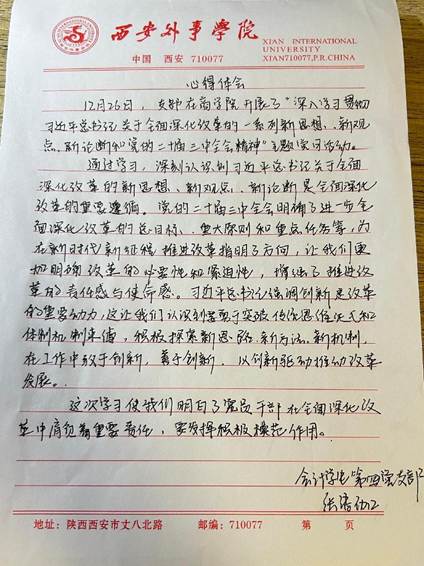 西安外事學院
XI'AN INTERNATIONAL
UNIVERSITY
中国 西安 710077
XIAN710077,P.R.CHINA
心得体会
12月26日,支部在商学院开展了"深入学习贯彻
习近平总书记关于全面深化改革的一系列新思想、新观
点、新论断和党的二十届三中全会精神"主题实习活动。
通过学习,深刻认识到习近平总书记关于全面
深化改革的新思想、新观点、新论断是全面深化
改革的重要遵循。党的二十届三中全会明确了进一步全
面深化改革的总目标、重大原则和重点任务等,为
在新时代新征程推进改革指明了方向,让我们更
加明确改革的必要性和紧迫性,增强了推进改
革的责任感与使命感。习近平总书记强调创新是改革
的重要动力,这让我们认识到要勇于突破传统思维模式和
体制机制束缚,积极探索新思路、新方法、新机制,
在工作中敢于创新、善于创新,以创新驱动推动改革
发展。
这次学习使我们明白了党员干部在全面深化改
革中肩负着重要责任,要发挥积极模范作用。
会计学生第四党支部
张
地址:陕西西安市丈八北路 邮编:710077 第 页